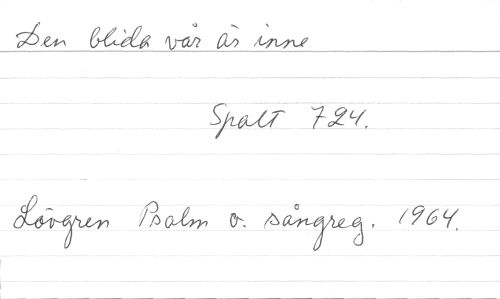 Den blida vår är inne
Spalt 724.
Lövgren Psalm o. sångreg. 1964.